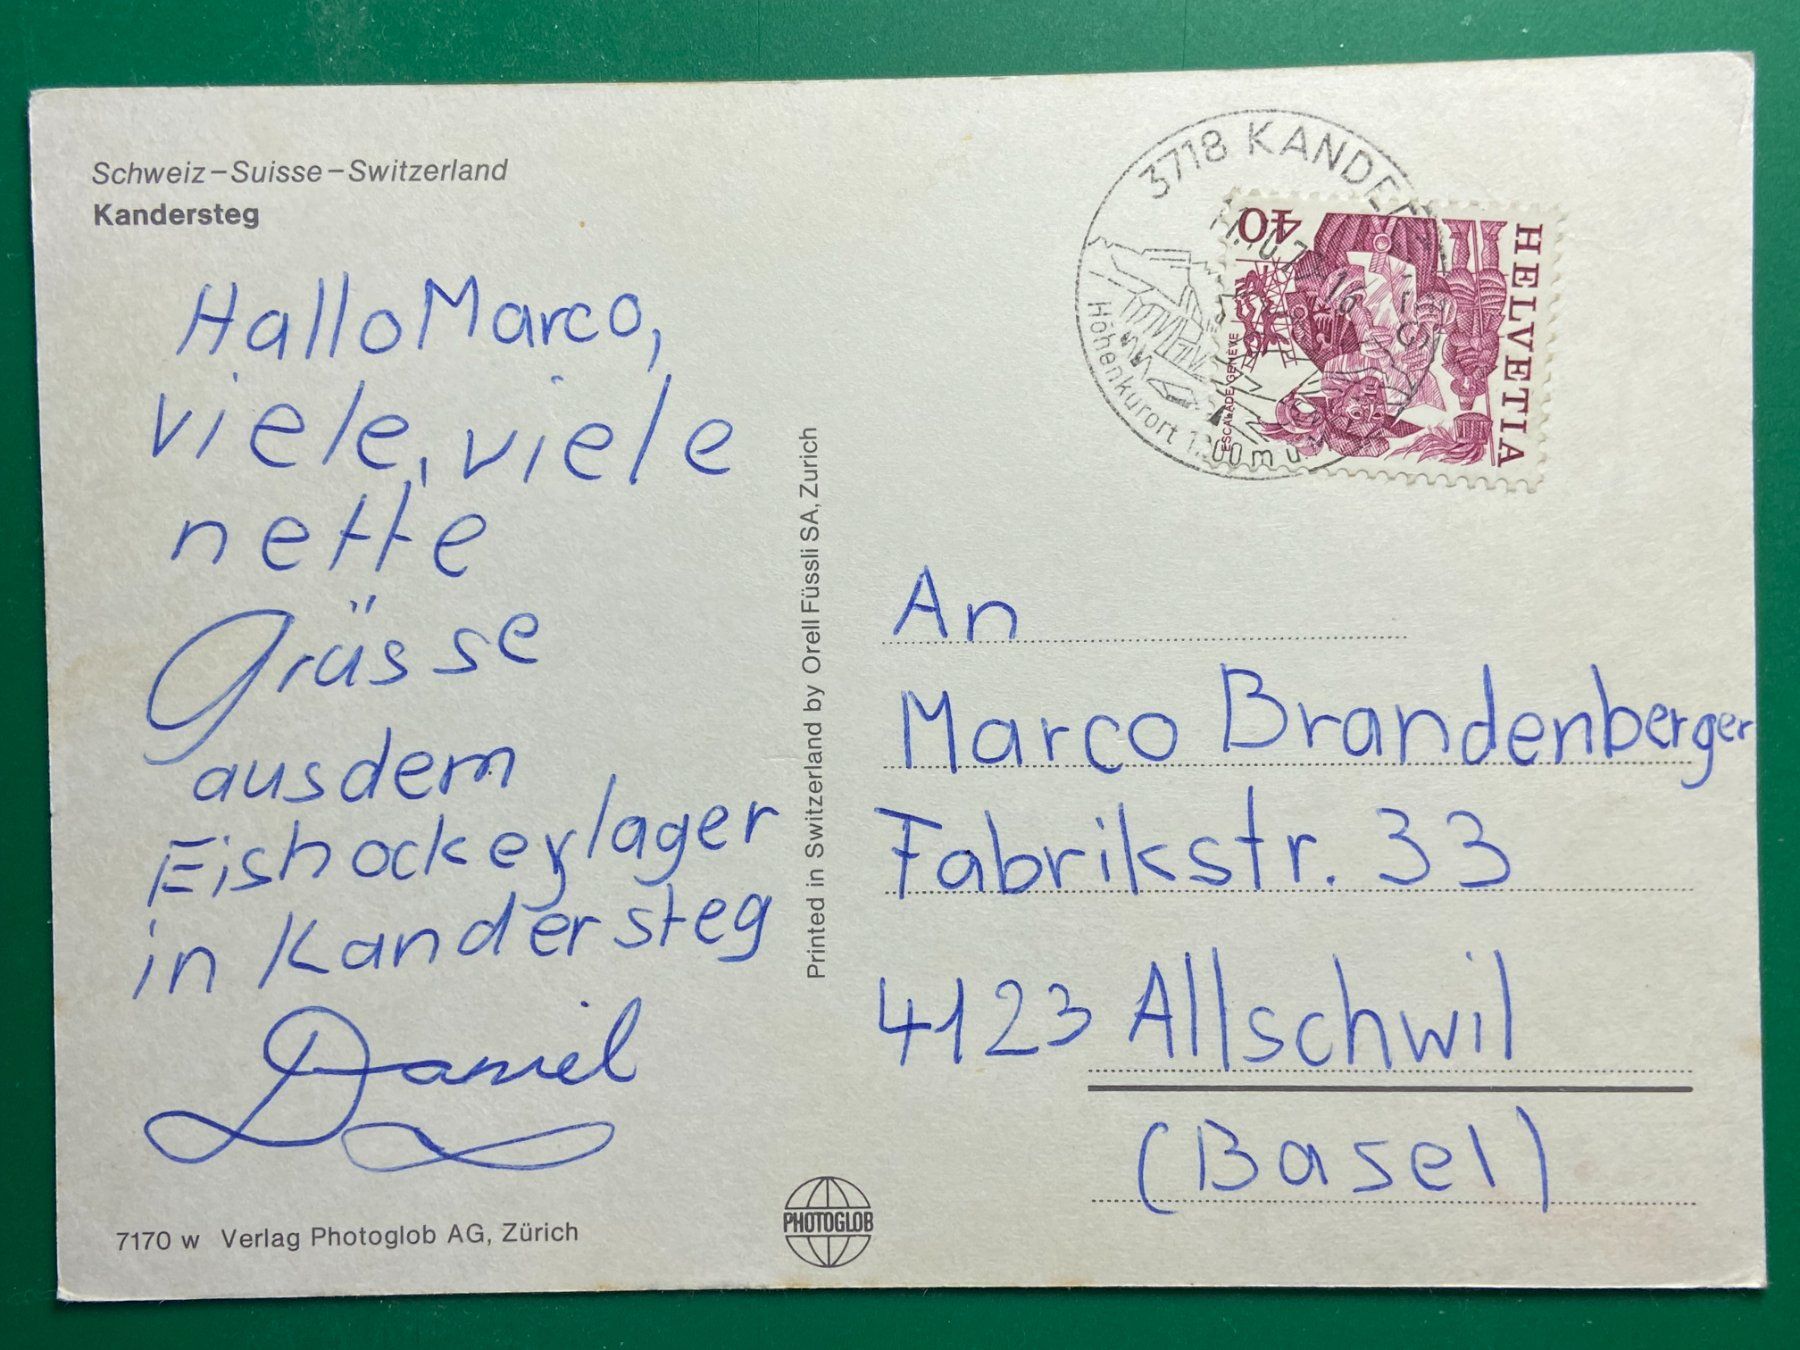 Schweiz–Suisse–Switzerland
Kandersteg
Hallo Marco,
viele, viele
nette
Grüsse
aus dem
Eishockeylager
in Kandersteg
Daniel
7170 w Verlag Photoglob AG, Zürich
Printed in Switzerland by Orell Füssli SA, Zurich
PHOTOGLOB
3718 KANDER
Höhenkurort
HELVETIA
40
ESCALADE GENÈVE
An
Marco Brandenberger
Fabrikstr. 33
4123 Allschwil
(Basel)